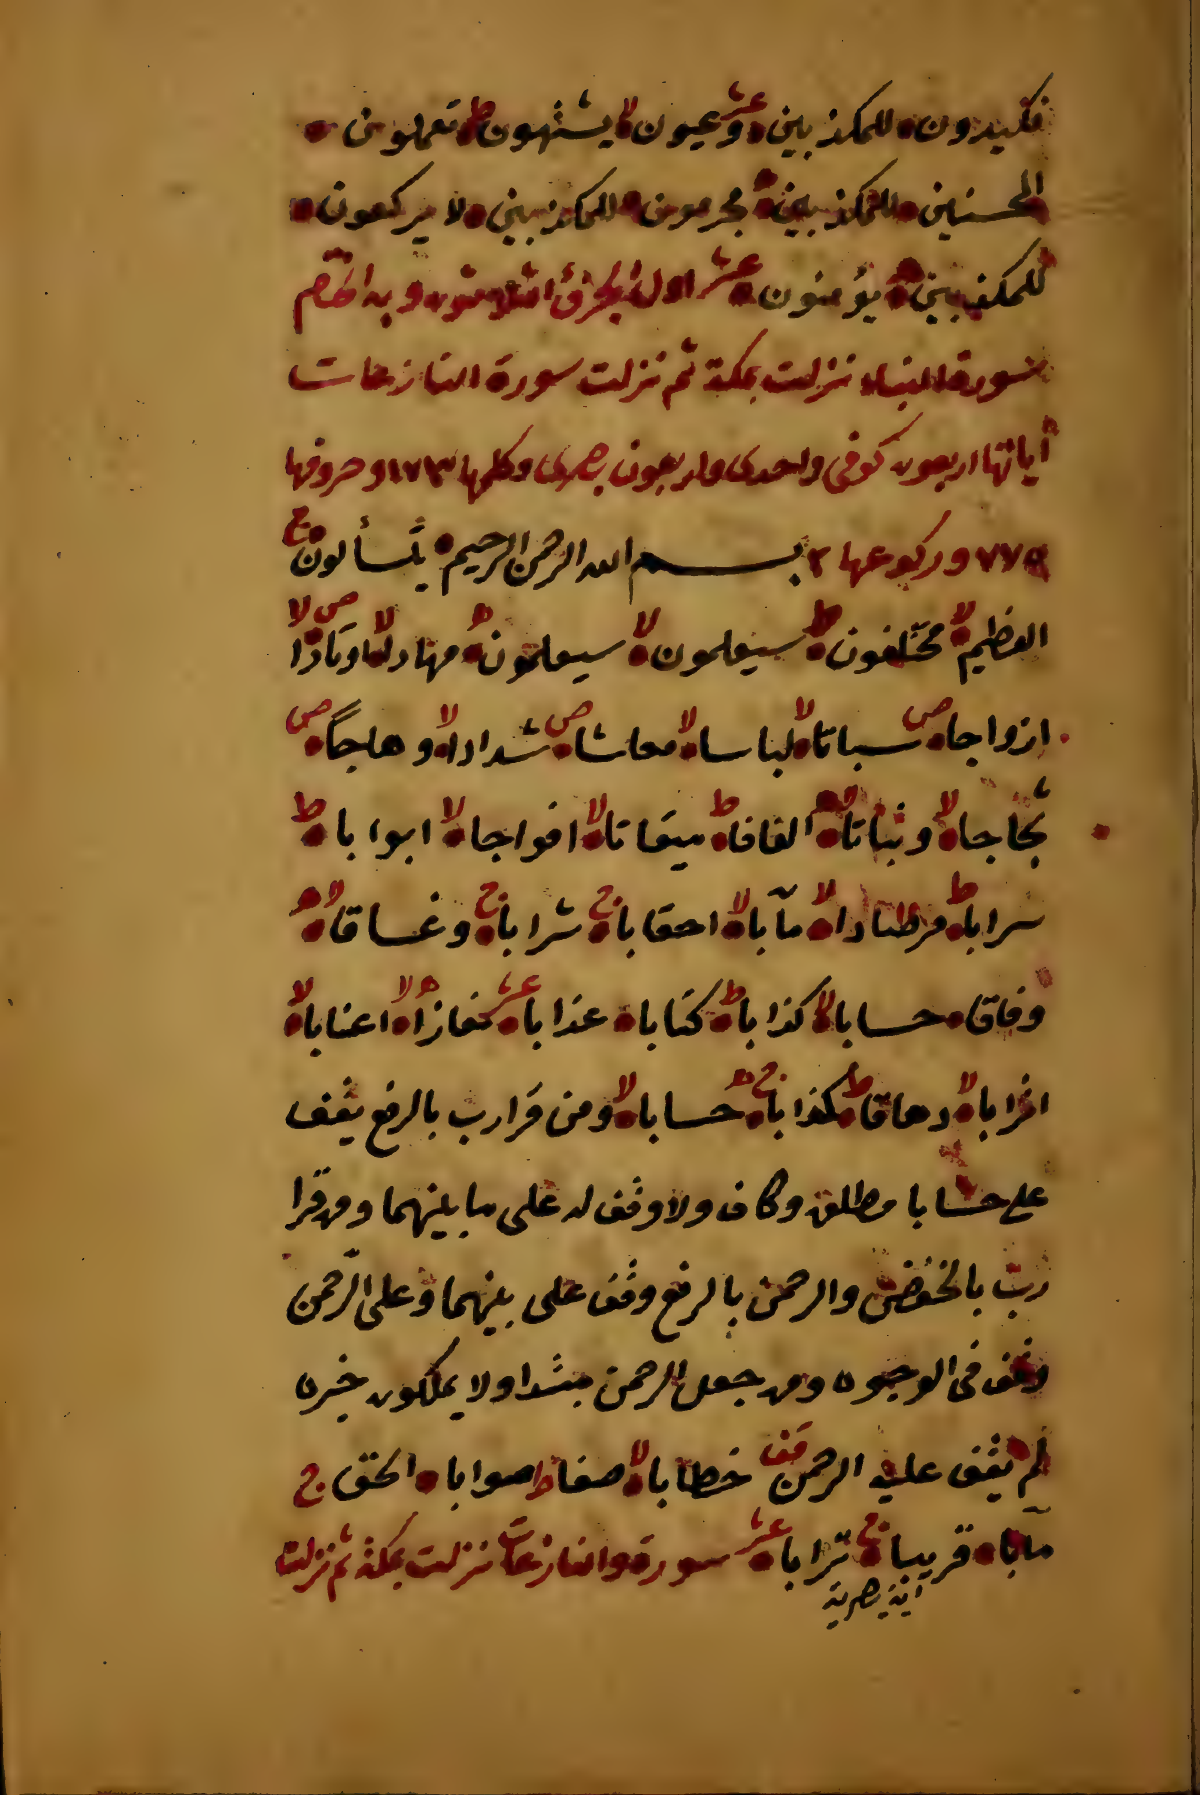 فكيدون للمكذبين عشر وعيون لا يشتهون ط تعملون
المحسنين للمكذبين مجرمون للمكذبين لا يركعون
للمكذبين يؤمنون عشر اول الجزؤ الثلاثون وبه الختم
سورة النباء نزلت بمكة ثم نزلت سورة النازعات
آياتها اربعون كوفى واحدى واربعون بصرى وكلمها ١٧٣ وحروفها
٧٧٥ وركوعها ٢ بسم الله الرحمن الرحيم يتسألون ج
العظيم لا مختلفون ط سيعلمون لا سيعلمون مهادا لا اوتادا ص لا
ازواجا ص سباتا لا لباسا لا معاشا ص شدادا لا وهاجا ص
ثجاجا لا ونباتا لا الفافا ط ميقاتا لا افواجا لا ابوابا ط
سرابا ط مرصادا لا مآبا لا احقابا ج شرابا ج وغساقا لا
وفاقا حسابا لا كذابا ط كتابا عذابا عشر مفازا لا اعنابا لا
اترابا لا دهاقا ط كذابا ج حسابا لا ومن قرا رب بالرفع يقف
على حسابا مطلق وكاف ولا وقف له على ما بينهما ومن قرا
رب بالخفض والرحمن بالرفع وقف على بينهما وعلى الرحمن
وقف فى الوجوه ومن جعل الرحمن مبتدا ولا يملكون خبره
لم يقف عليه الرحمن قف خطابا لا صفا ط صوابا الحق ج
مآبا قريبا ج ترابا عشر سورة والنازعات نزلت بمكة ثم نزلت
آية بصرية